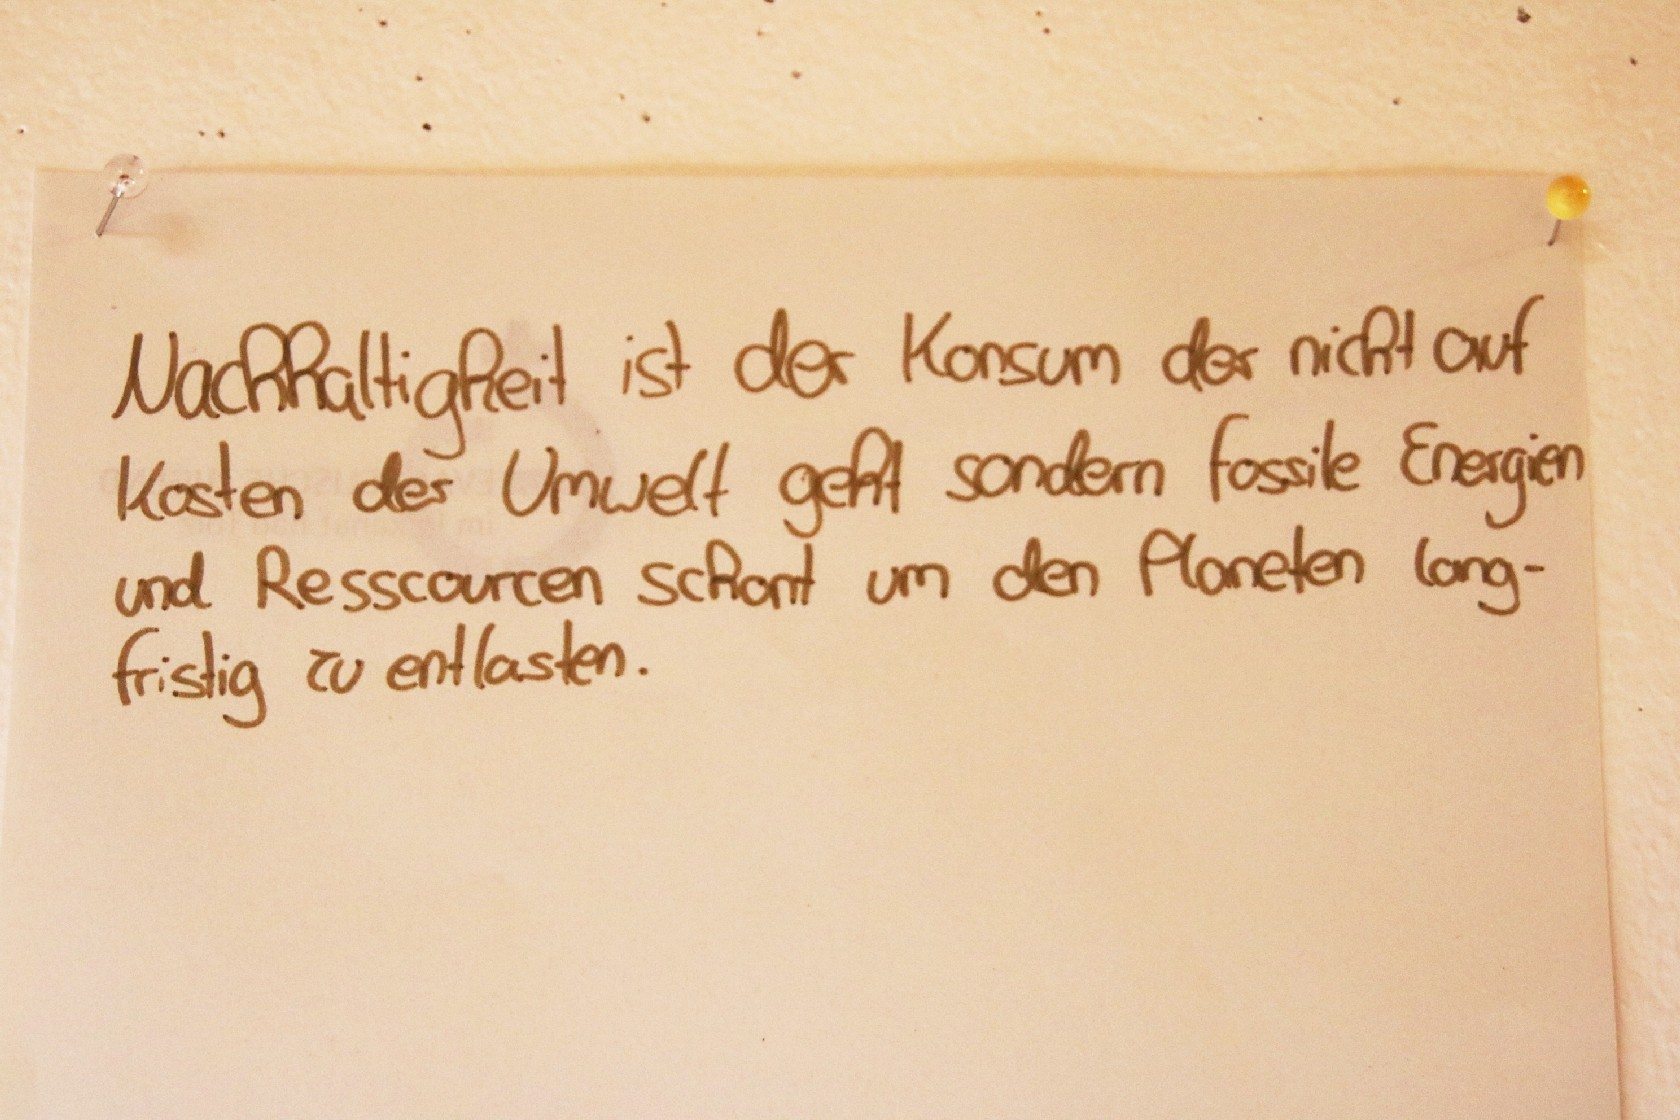 Nachhaltigkeit ist der Konsum der nicht auf
Kosten der Umwelt geht sondern fossile Energien
und Resscourcen schont um den Planeten lang-
fristig zu entlasten.